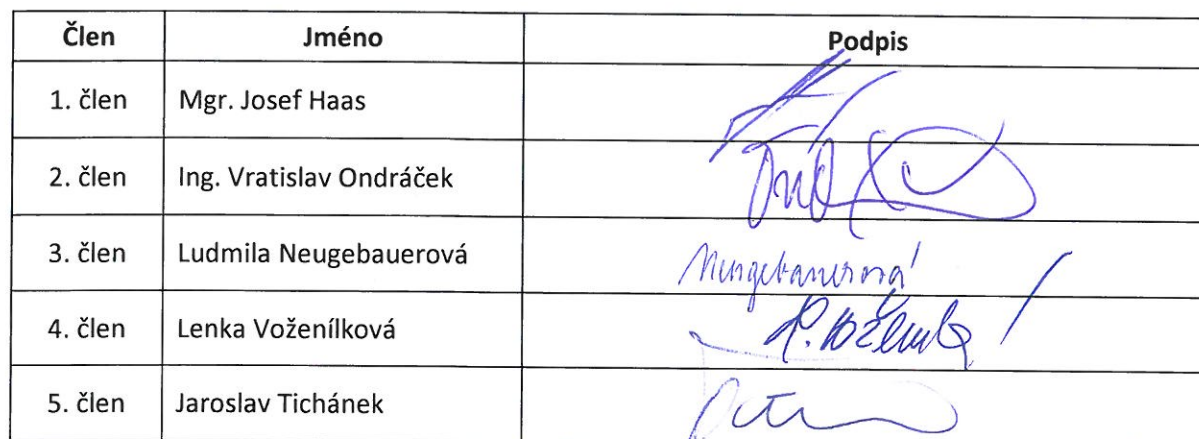 Člen Jméno Podpis
1. člen Mgr. Josef Haas
2. člen Ing. Vratislav Ondráček
3. člen Ludmila Neugebauerová Neugebauerová
4. člen Lenka Voženílková
5. člen Jaroslav Tichánek